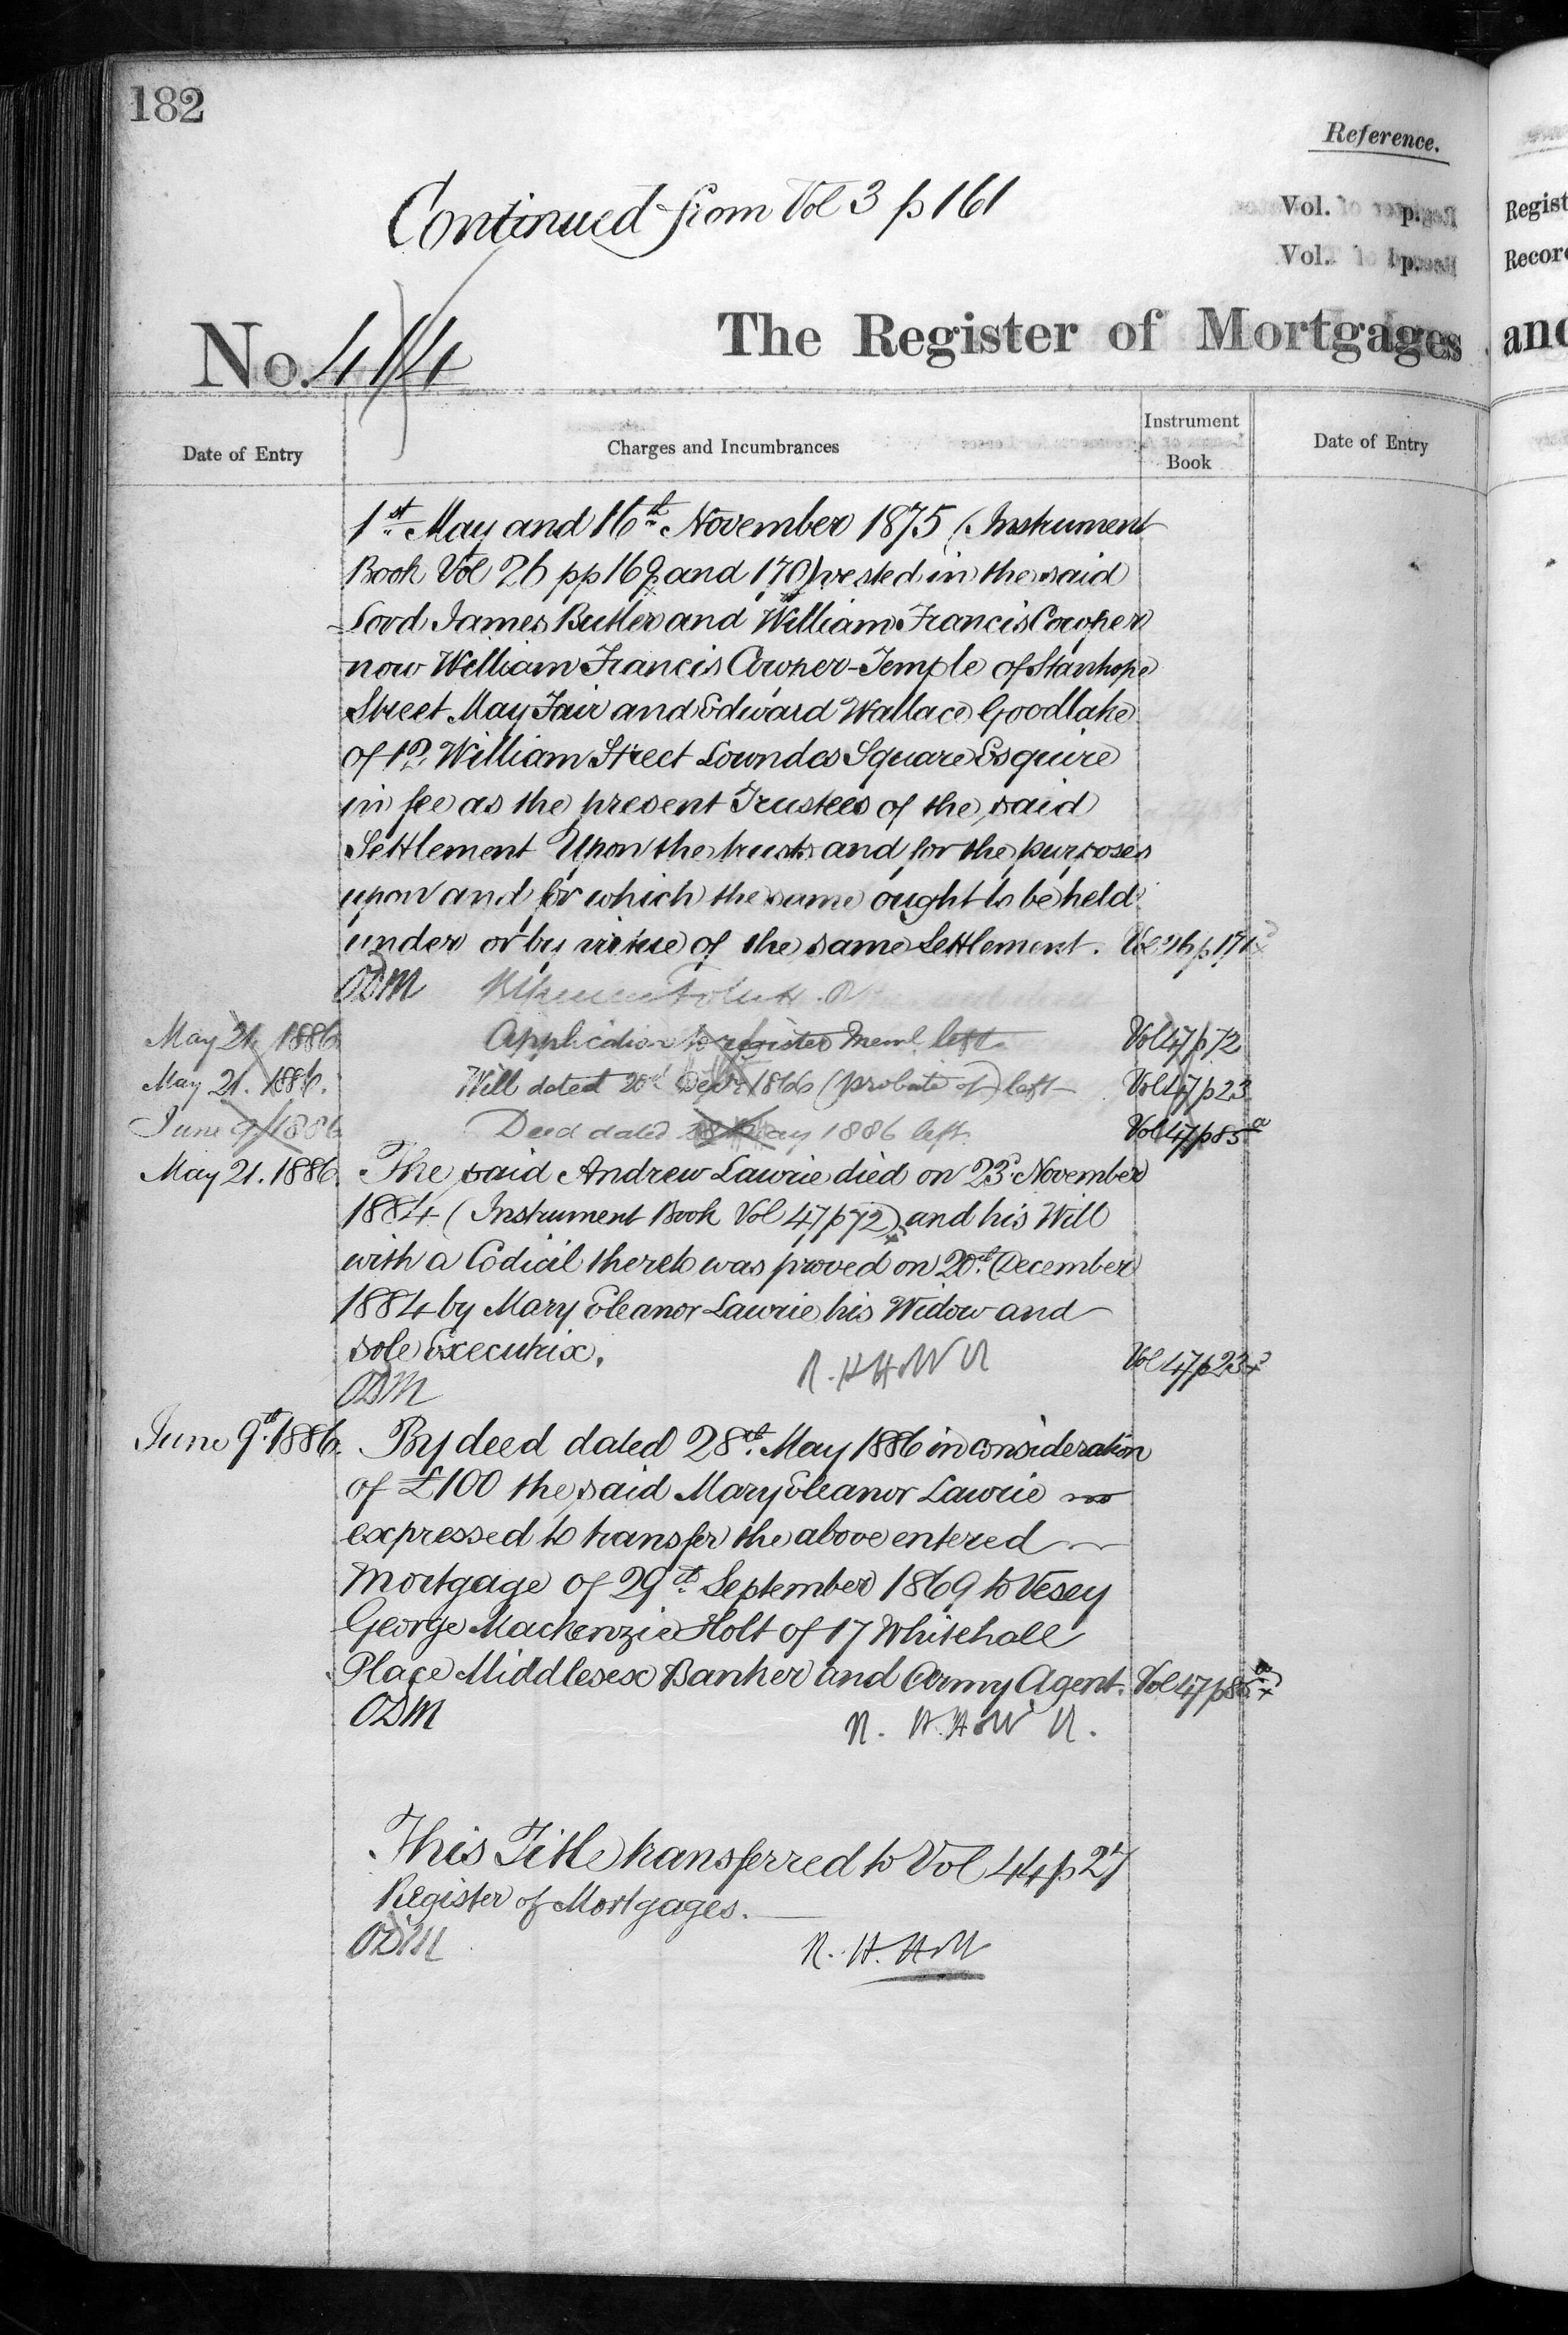 182
Reference.
Continued from Vol 3 p 161
Vol. p.
Regist
Vol. p.
Recor
No. 414
The Register of Mortgages
and
Date of Entry
Charges and Incumbrances
Instrument Book
Date of Entry
1st May and 16th November 1875 (Instrument
Book Vol 26 pp 169 and 170) vested in the said
Lord James Butler and William Francis Cowper
now William Francis Cowper-Temple of Stanhope
Street May Fair and Edward Wallace Goodlake
of William Street Lowndes Square Esquire
in fee as the present Trustees of the said
Settlement Upon the trusts and for the purposes
upon and for which the same ought to be held
under or by virtue of the same Settlement. Vol 26 p 171
ODM
May 21. 1886 Application to register Meml. left Vol 47 p 72
May 21. 1886. Will dated 20th 1866 (probate of) left Vol 47 p 23
June 9/1886 Deed dated 28 May 1886 left. Vol 47 p 85a
May 21. 1886. The said Andrew Lawrie died on 23d November
1884 (Instrument Book Vol 47 p 72) and his Will
with a Codicil thereto was proved on 20th December
1884 by Mary Eleanor Lawrie his Widow and
sole Executrix. Vol 47 p 23
ODM
June 9th 1886. By deed dated 28th May 1886 in consideration
of £100 the said Mary Eleanor Lawrie
expressed to transfer the above entered
Mortgage of 29th September 1869 to Vesey
George Mackenzie Holt of 17 Whitehall
Place Middlesex Banker and Army Agent. Vol 47 p 85
ODM
This Title transferred to Vol 44 p 27
Register of Mortgages.
ODM